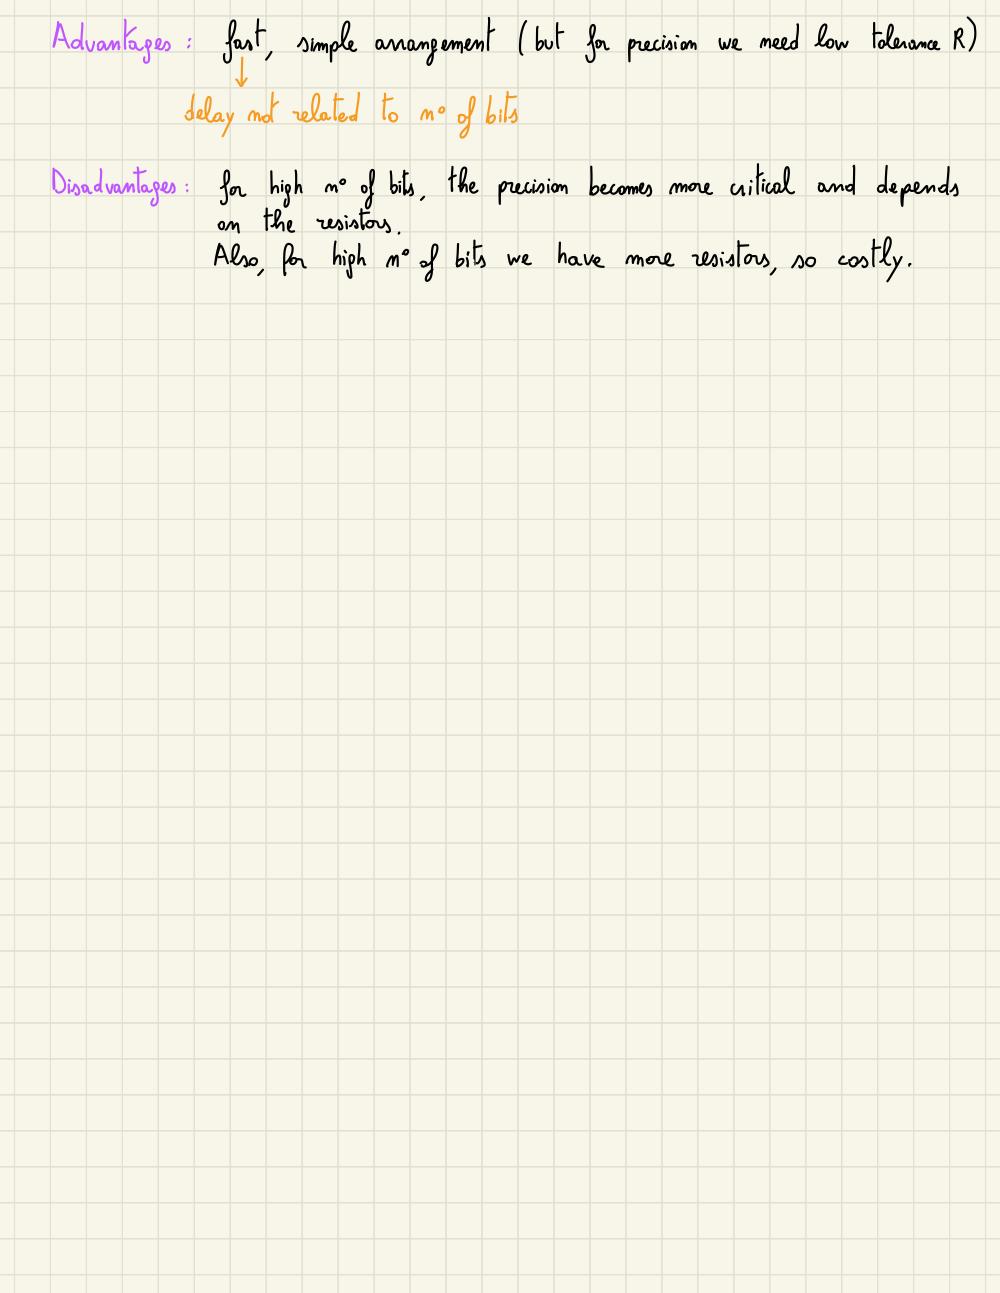 Advantages : fast, simple arrangement (but for precision we need low tolerance R)
delay not related to n° of bits
Disadvantages : for high n° of bits, the precision becomes more critical and depends
on the resistors.
Also, for high n° of bits we have more resistors, so costly.